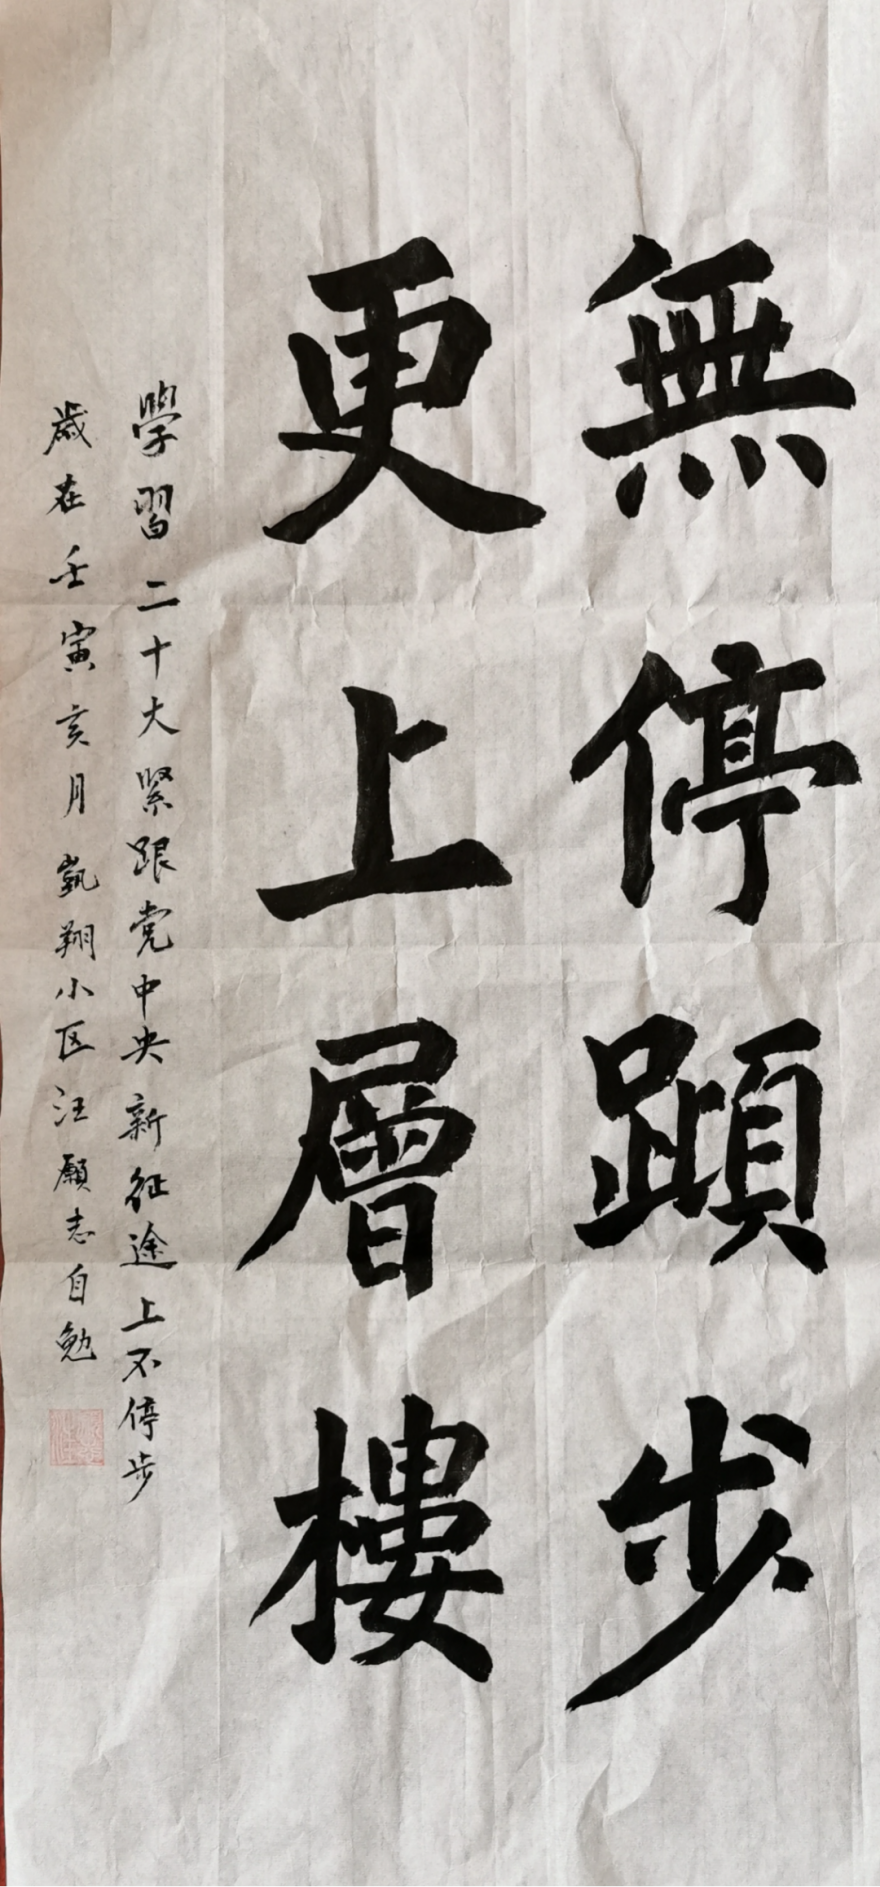 無停蹞步
更上層樓
學習二十大緊跟党中央新征途上不停步
歲在壬寅亥月凱翔小区汪願志自勉